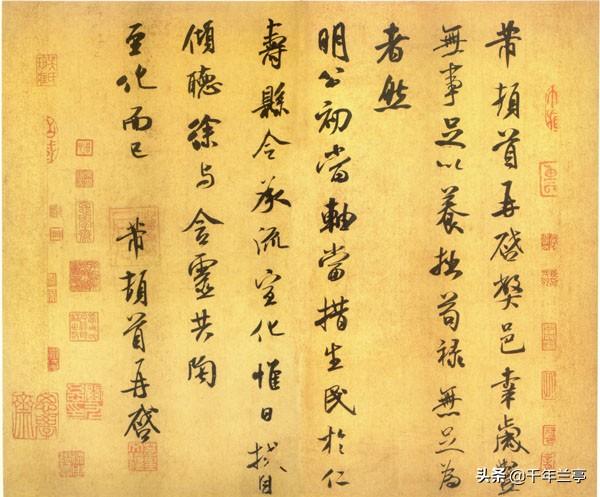 芾頓首再啓弊邑幸歲豐
無事足以養拙苟祿無足為
者然
明公初當軸當措生民於仁
壽縣令承流宣化惟日拭目
傾聽徐与含靈共陶
至化而已 芾頓首再啓
头条 @千年兰亭